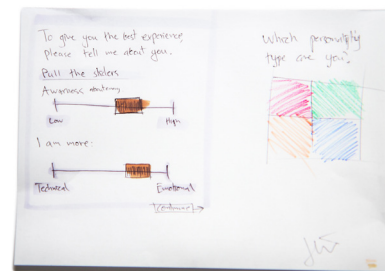 To give you the best experience,
please tell me about you.
Pull the sliders
Awareness
Low
High
I am more:
Technical
Emotional
continue
Which personality
type are you?